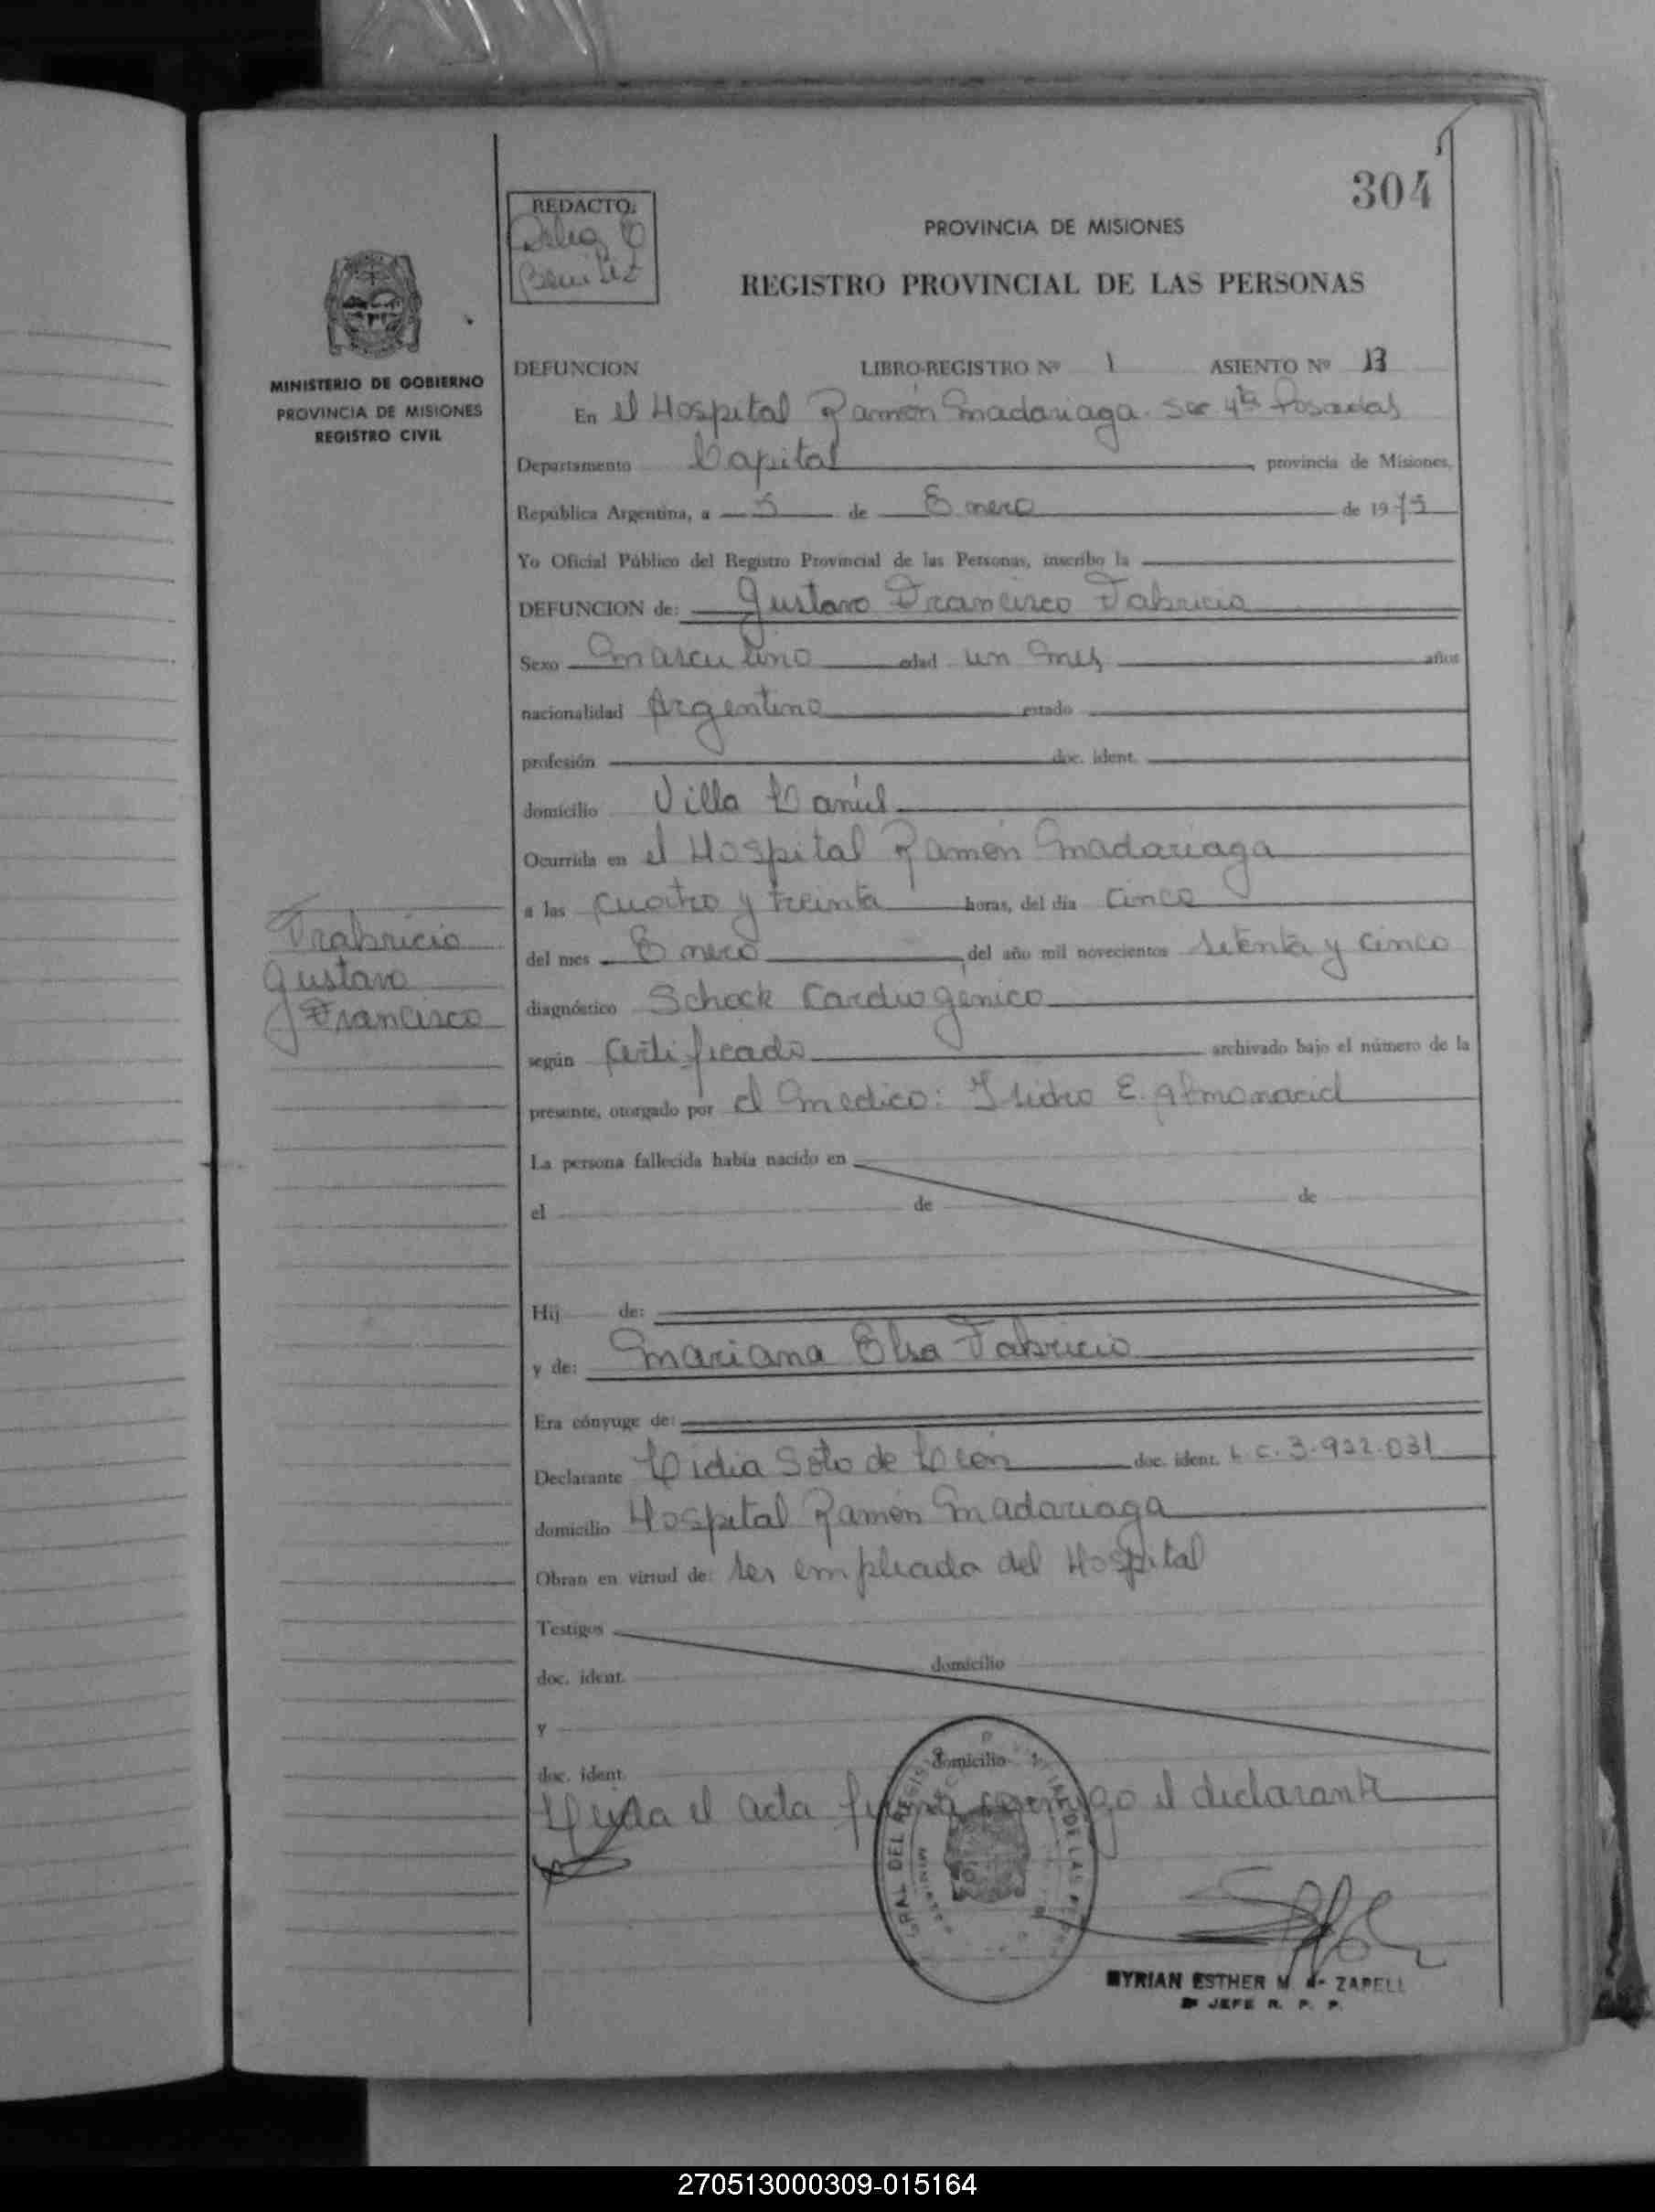 304
REDACTO:
Benitez
PROVINCIA DE MISIONES
REGISTRO PROVINCIAL DE LAS PERSONAS
MINISTERIO DE GOBIERNO
PROVINCIA DE MISIONES
REGISTRO CIVIL
DEFUNCION LIBRO-REGISTRO Nº 1 ASIENTO Nº 13
En el Hospital Ramón Madariaga. Sec 4ta Posadas
Departamento Capital, provincia de Misiones,
República Argentina, a 5 de Enero de 1975
Yo Oficial Público del Registro Provincial de las Personas, inscribo la
DEFUNCION de: Gustavo Francisco Fabricio
Sexo Masculino edad un mes años
nacionalidad Argentino estado
profesión doc. ident.
domicilio Villa
Ocurrida en el Hospital Ramón Madariaga
a las cuatro y treinta horas, del día cinco
del mes Enero, del año mil novecientos setenta y cinco
diagnóstico Schock Cardiogenico
según certificado archivado bajo el número de la
presente, otorgado por el Medico: Isidro E. Almonacid
Frabricio
Gustavo
Francisco
La persona fallecida había nacido en
el de de
Hij de:
y de: Mariana Elsa Fabricio
Era cónyuge de:
Declarante Lidia Soto de León doc. ident. L.C. 3.922.031
domicilio Hospital Ramón Madariaga
Obran en virtud de: ser empleada del Hospital
Testigos
doc. ident. domicilio
y
doc. ident. domicilio
Leida el acta firma conmigo el declarante
RAL DEL REGIS DE LAS PE
MYRIAN ESTHER M. ZAPELL
JEFE R. P. P.
270513000309-015164